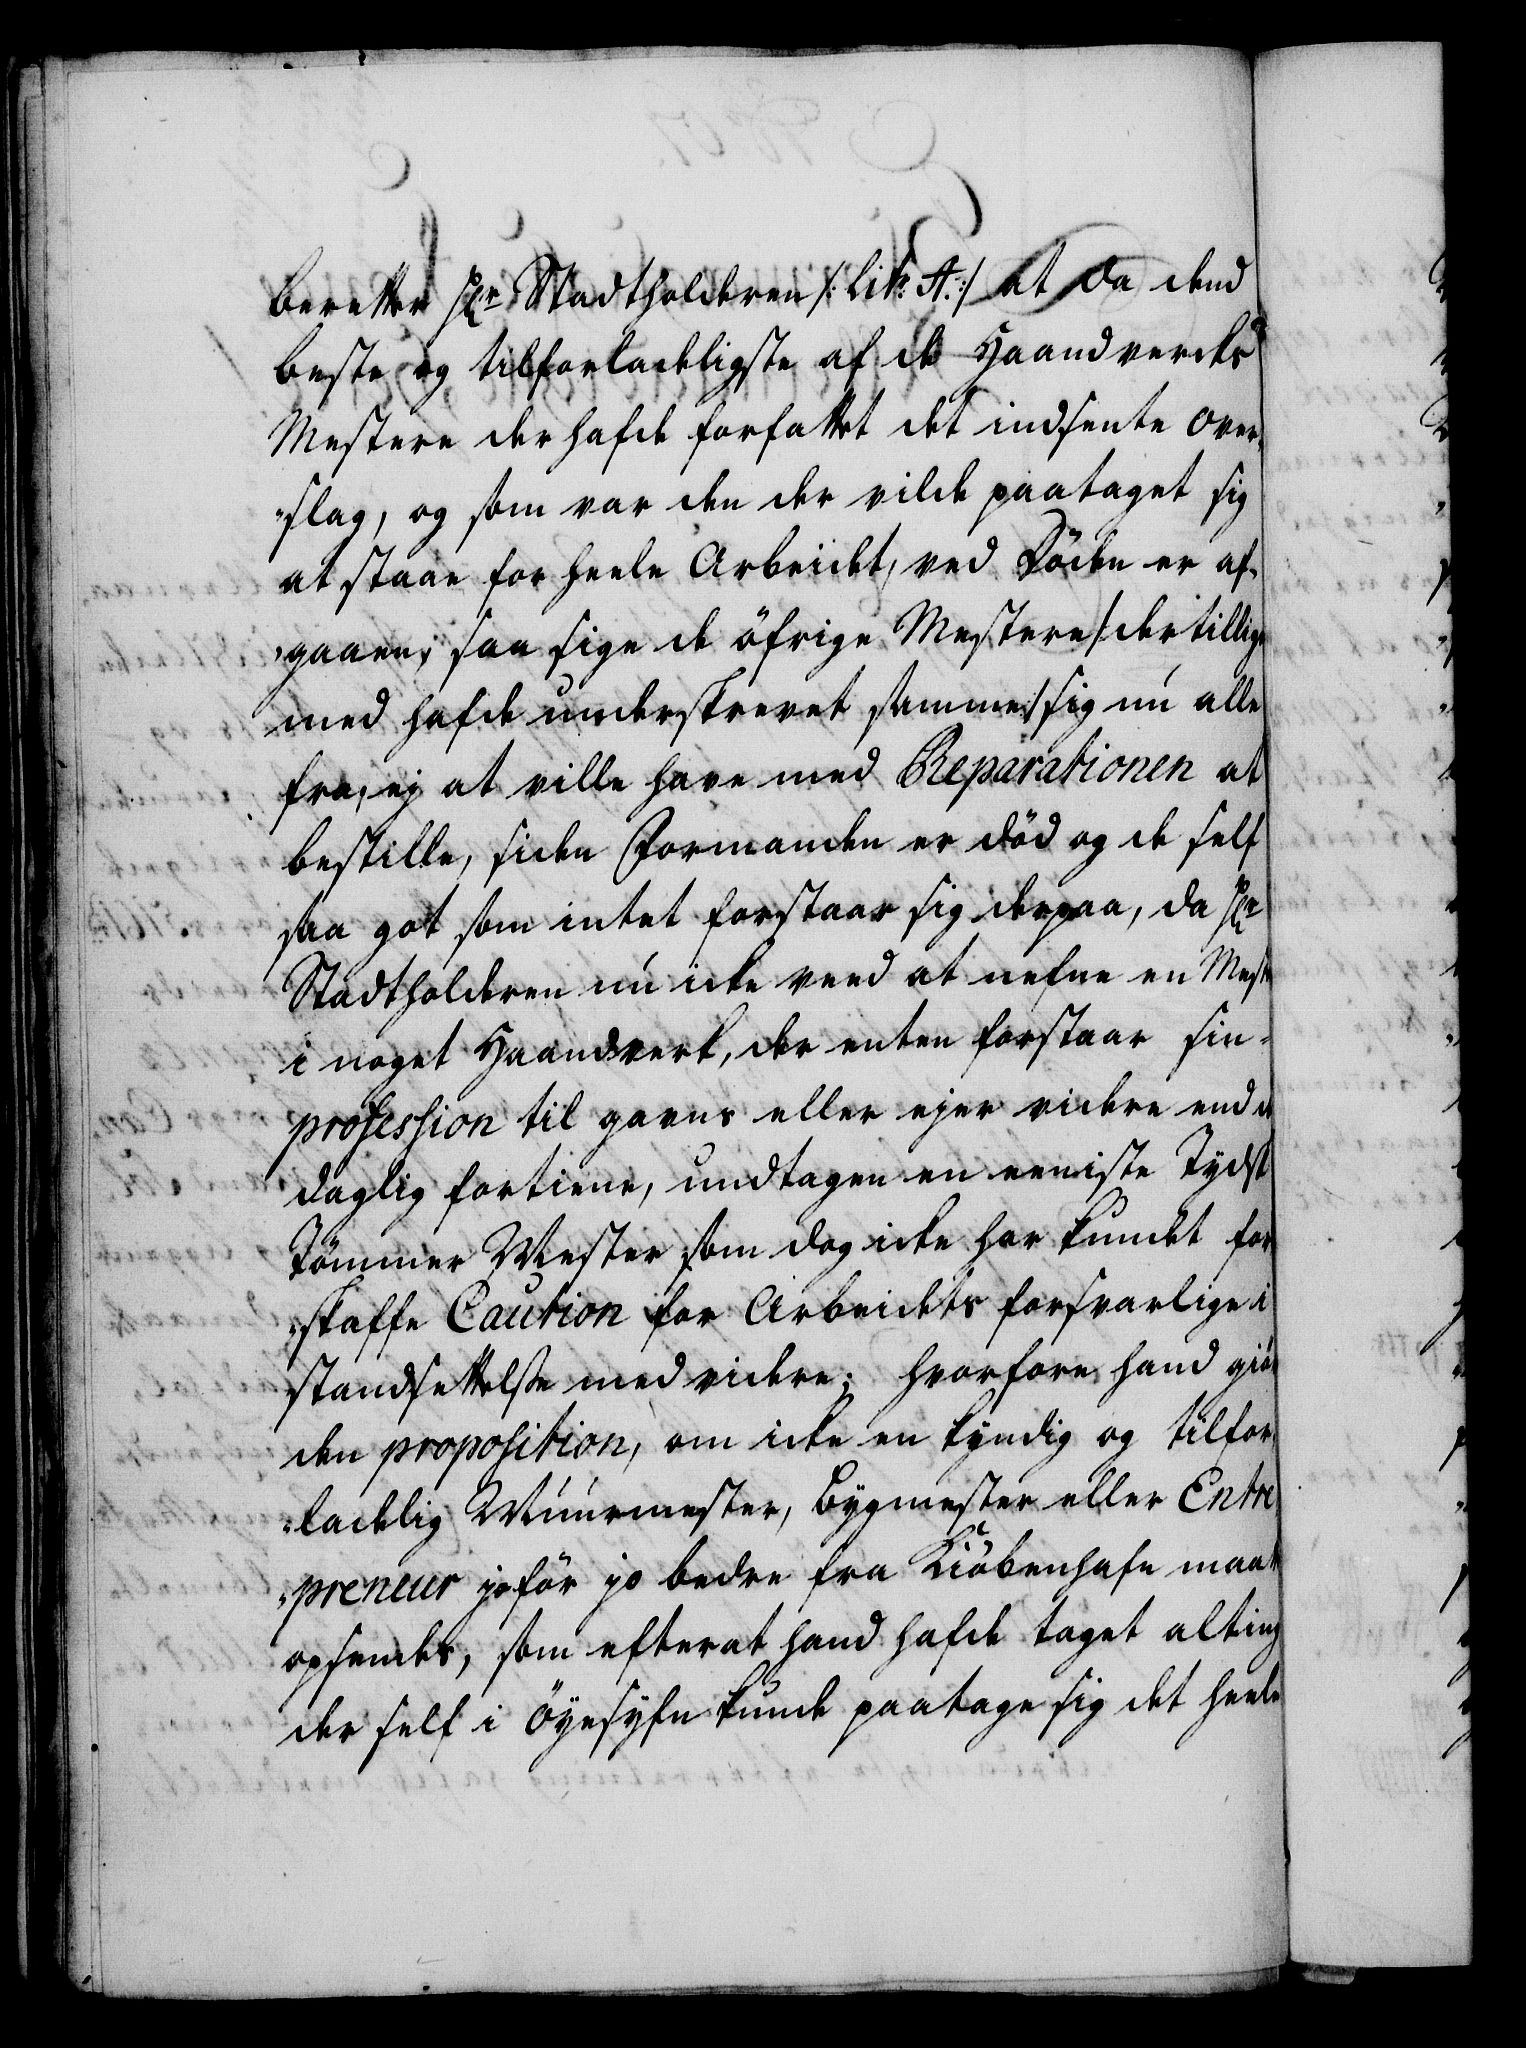 beretter Hr Stadtholderen /: Litr: A. :/ at da dend
beste og tilforladeligste af de Haandvercks
Mestere der hafde forfattet det indsente Over-
"slag, og som var den der vilde paataget sig
at staae for heele Arbeidet, ved Döden er af-
"gaaen; saa sige de öfrige Mestere /: der tillige
med hafde underskrevet samme :/ sig nu alle
fra, ej at ville have med Reparationen at
bestille, siden Formanden er död og de self
saa got som intet forstaar sig derpaa, da Hr
Stadtholderen nu icke veed at nefne en Mest
i noget Haandverk, der enten forstaar sin
profession til gavns eller ejer videre end de
daglig fortiene, undtagen en eeniste Tydsk
Tömmer Mester som dog icke har kundet for
"skaffe Caution for Arbeidets forsvarlige i
standsettelse med videre; hvorfore hand giör
den proposition, om icke en kyndig og tilfor-
"ladelig Muurmester, Bygmester eller Entre
"preneur jo för jo bedre fra Kiöbenhafn maat
opsendes, som efterat hand hafde taget alting
der self i Öyesyfn kunde paatage sig det heele